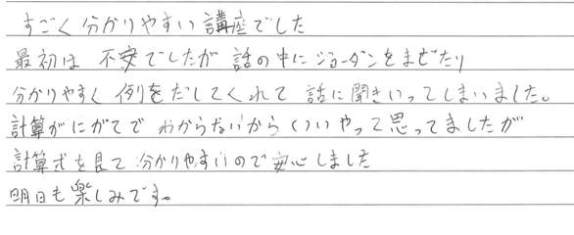 すごく分かりやすい講座でした
最初は 不安でしたが 話の中にジョーダンをまぜたり
分かりやすく 例をだしてくれて 話に聞きいってしまいました。
計算がにがてで わからないから やって思ってましたが
計算式を見て 分かりやすいので安心しました
明日も楽しみです。